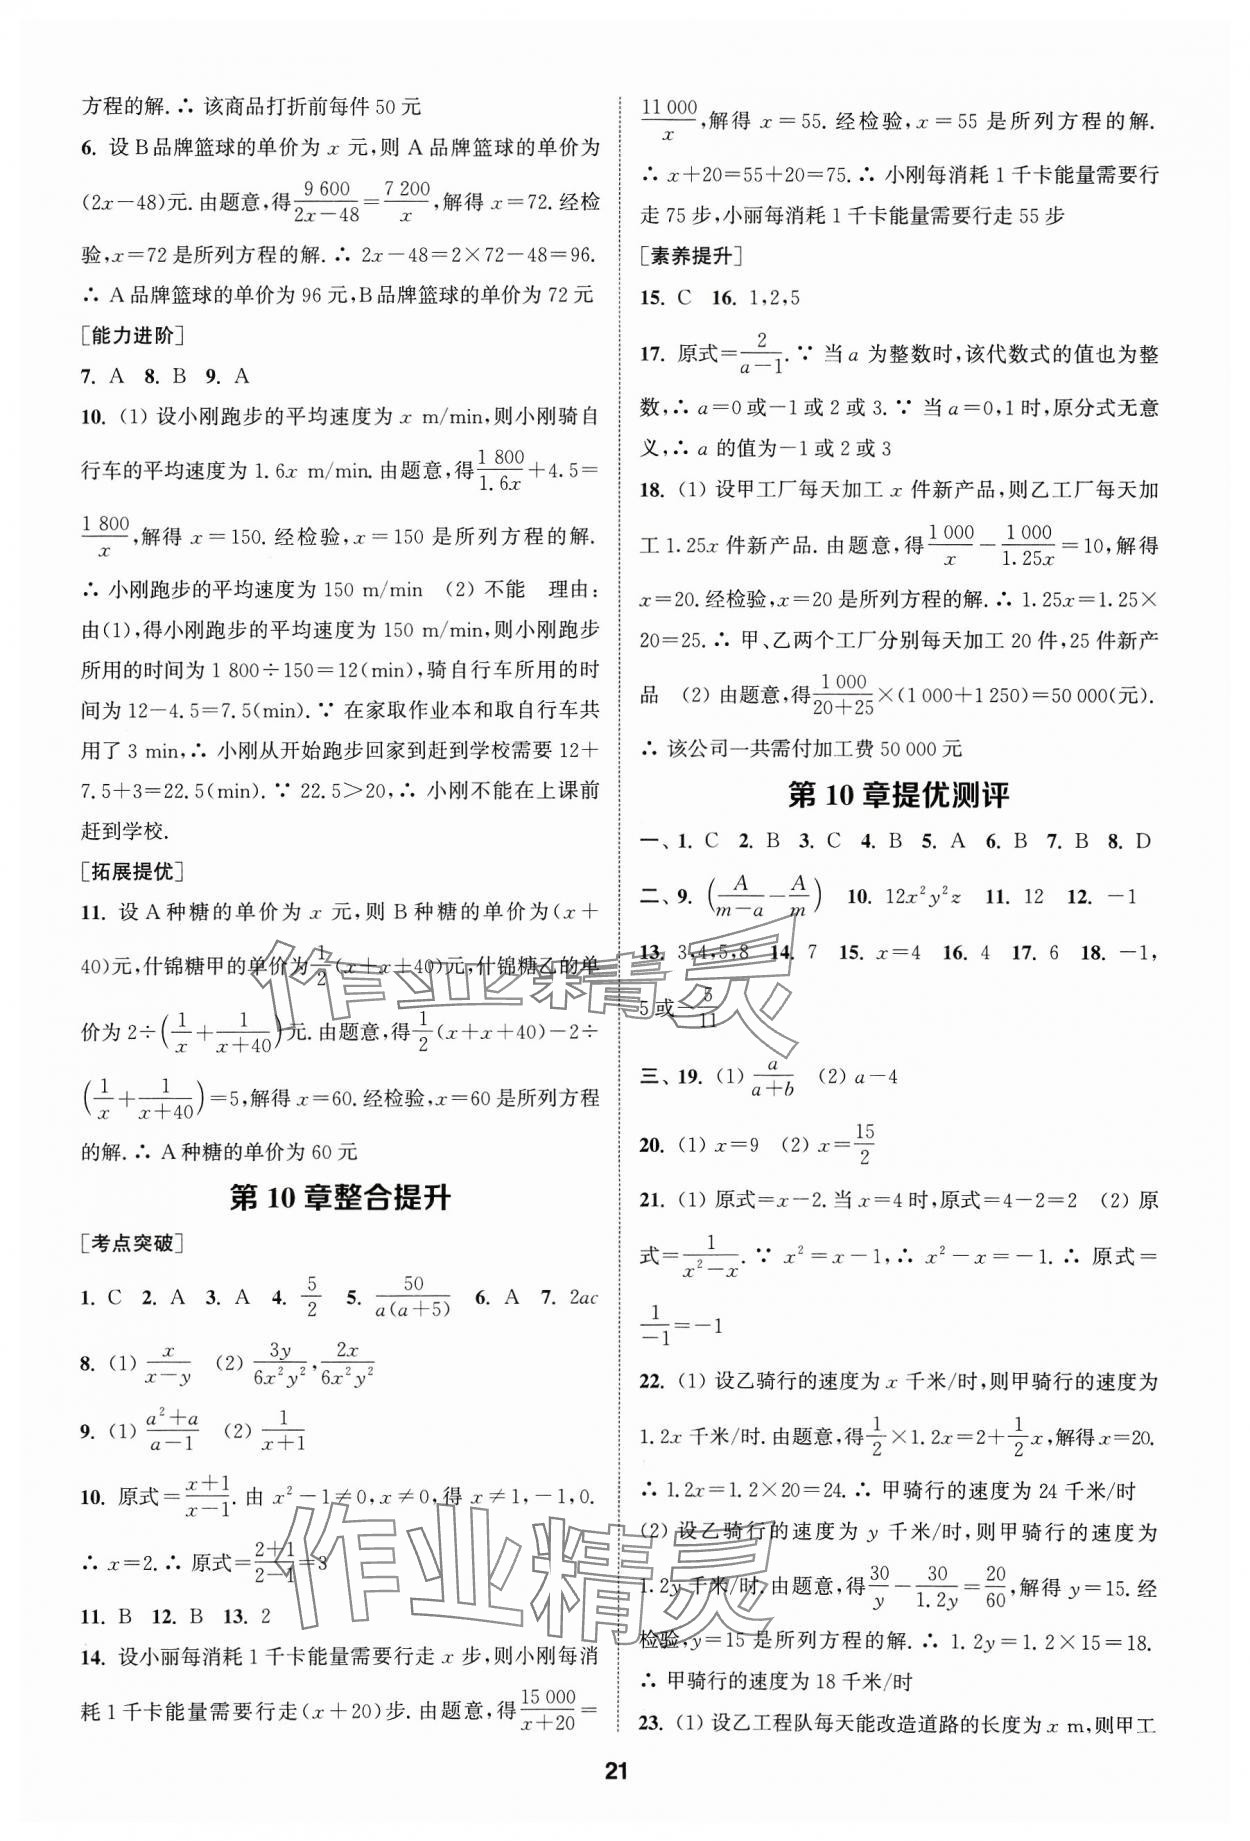 方程的解.∴ 该商品打折前每件 50 元
6. 设 B 品牌篮球的单价为 x 元,则 A 品牌篮球的单价为
(2x－48)元.由题意,得\frac{9 600}{2x－48}=\frac{7 200}{x},解得 x=72.经检
验,x=72 是所列方程的解.∴ 2x－48=2×72－48=96.
∴ A 品牌篮球的单价为 96 元,B 品牌篮球的单价为 72 元
[能力进阶]
7. A 8. B 9. A
10. (1) 设小刚跑步的平均速度为 x m/min,则小刚骑自
行车的平均速度为 1.6x m/min.由题意,得\frac{1 800}{1.6x}+4.5=
\frac{1 800}{x},解得 x=150.经检验,x=150 是所列方程的解.
∴ 小刚跑步的平均速度为 150 m/min (2) 不能 理由:
由(1),得小刚跑步的平均速度为 150 m/min,则小刚跑步
所用的时间为 1 800÷150=12(min),骑自行车所用的时
间为 12－4.5=7.5(min).∵ 在家取作业本和取自行车共
用了 3 min,∴ 小刚从开始跑步回家到赶到学校需要 12+
7.5+3=22.5(min).∵ 22.5>20,∴ 小刚不能在上课前
赶到学校.
[拓展提优]
11. 设 A 种糖的单价为 x 元,则 B 种糖的单价为(x+
40)元,什锦糖甲的单价为\frac{1}{2}(x+x+40)元,什锦糖乙的单
价为 2÷(\frac{1}{x}+\frac{1}{x+40})元.由题意,得\frac{1}{2}(x+x+40)－2÷
(\frac{1}{x}+\frac{1}{x+40})=5,解得 x=60.经检验,x=60 是所列方程
的解.∴ A 种糖的单价为 60 元
第 10 章整合提升
[考点突破]
1. C 2. A 3. A 4. \frac{5}{2} 5. \frac{50}{a(a+5)} 6. A 7. 2ac
8. (1) \frac{x}{x－y} (2) \frac{3y}{6x²y²},\frac{2x}{6x²y²}
9. (1) \frac{a²+a}{a－1} (2) \frac{1}{x+1}
10. 原式=\frac{x+1}{x－1}.由 x²－1≠0,x≠0,得 x≠1,－1,0.
∴ x=2.∴ 原式=\frac{2+1}{2－1}=3
11. B 12. B 13. 2
14. 设小丽每消耗 1 千卡能量需要行走 x 步,则小刚每消
耗 1 千卡能量需要行走(x+20)步.由题意,得\frac{15 000}{x+20}=
\frac{11 000}{x},解得 x=55.经检验,x=55 是所列方程的解.
∴ x+20=55+20=75.∴ 小刚每消耗 1 千卡能量需要行
走 75 步,小丽每消耗 1 千卡能量需要行走 55 步
[素养提升]
15. C 16. 1,2,5
17. 原式=\frac{2}{a－1}.∵ 当 a 为整数时,该代数式的值也为整
数,∴ a=0 或－1 或 2 或 3.∵ 当 a=0,1 时,原分式无意
义,∴ a 的值为－1 或 2 或 3
18. (1) 设甲工厂每天加工 x 件新产品,则乙工厂每天加
工 1.25x 件新产品.由题意,得\frac{1 000}{x}－\frac{1 000}{1.25x}=10,解得
x=20.经检验,x=20 是所列方程的解.∴ 1.25x=1.25×
20=25.∴ 甲、乙两个工厂分别每天加工 20 件,25 件新产
品 (2) 由题意,得\frac{1 000}{20+25}×(1 000+1 250)=50 000(元).
∴ 该公司一共需付加工费 50 000 元
第 10 章提优测评
一、1. C 2. B 3. C 4. B 5. A 6. B 7. B 8. D
二、9. (\frac{A}{m－a}－\frac{A}{m}) 10. 12x²y²z 11. 12 12. －1
13. 3,4,5,8 14. 7 15. x=4 16. 4 17. 6 18. －1,
5 或－\frac{5}{11}
三、19. (1) \frac{a}{a+b} (2) a－4
20. (1) x=9 (2) x=\frac{15}{2}
21. (1) 原式=x－2.当 x=4 时,原式=4－2=2 (2) 原
式=\frac{1}{x²－x}.∵ x²=x－1,∴ x²－x=－1.∴ 原式=
\frac{1}{－1}=－1
22. (1) 设乙骑行的速度为 x 千米/时,则甲骑行的速度为
1.2x 千米/时.由题意,得\frac{1}{2}×1.2x=2+\frac{1}{2}x,解得 x=20.
∴ 1.2x=1.2×20=24.∴ 甲骑行的速度为 24 千米/时
(2) 设乙骑行的速度为 y 千米/时,则甲骑行的速度为
1.2y 千米/时.由题意,得\frac{30}{y}－\frac{30}{1.2y}=\frac{20}{60},解得 y=15.经
检验,y=15 是所列方程的解.∴ 1.2y=1.2×15=18.
∴ 甲骑行的速度为 18 千米/时
23. (1) 设乙工程队每天能改造道路的长度为 x m,则甲工
21
作业精灵
作业精灵